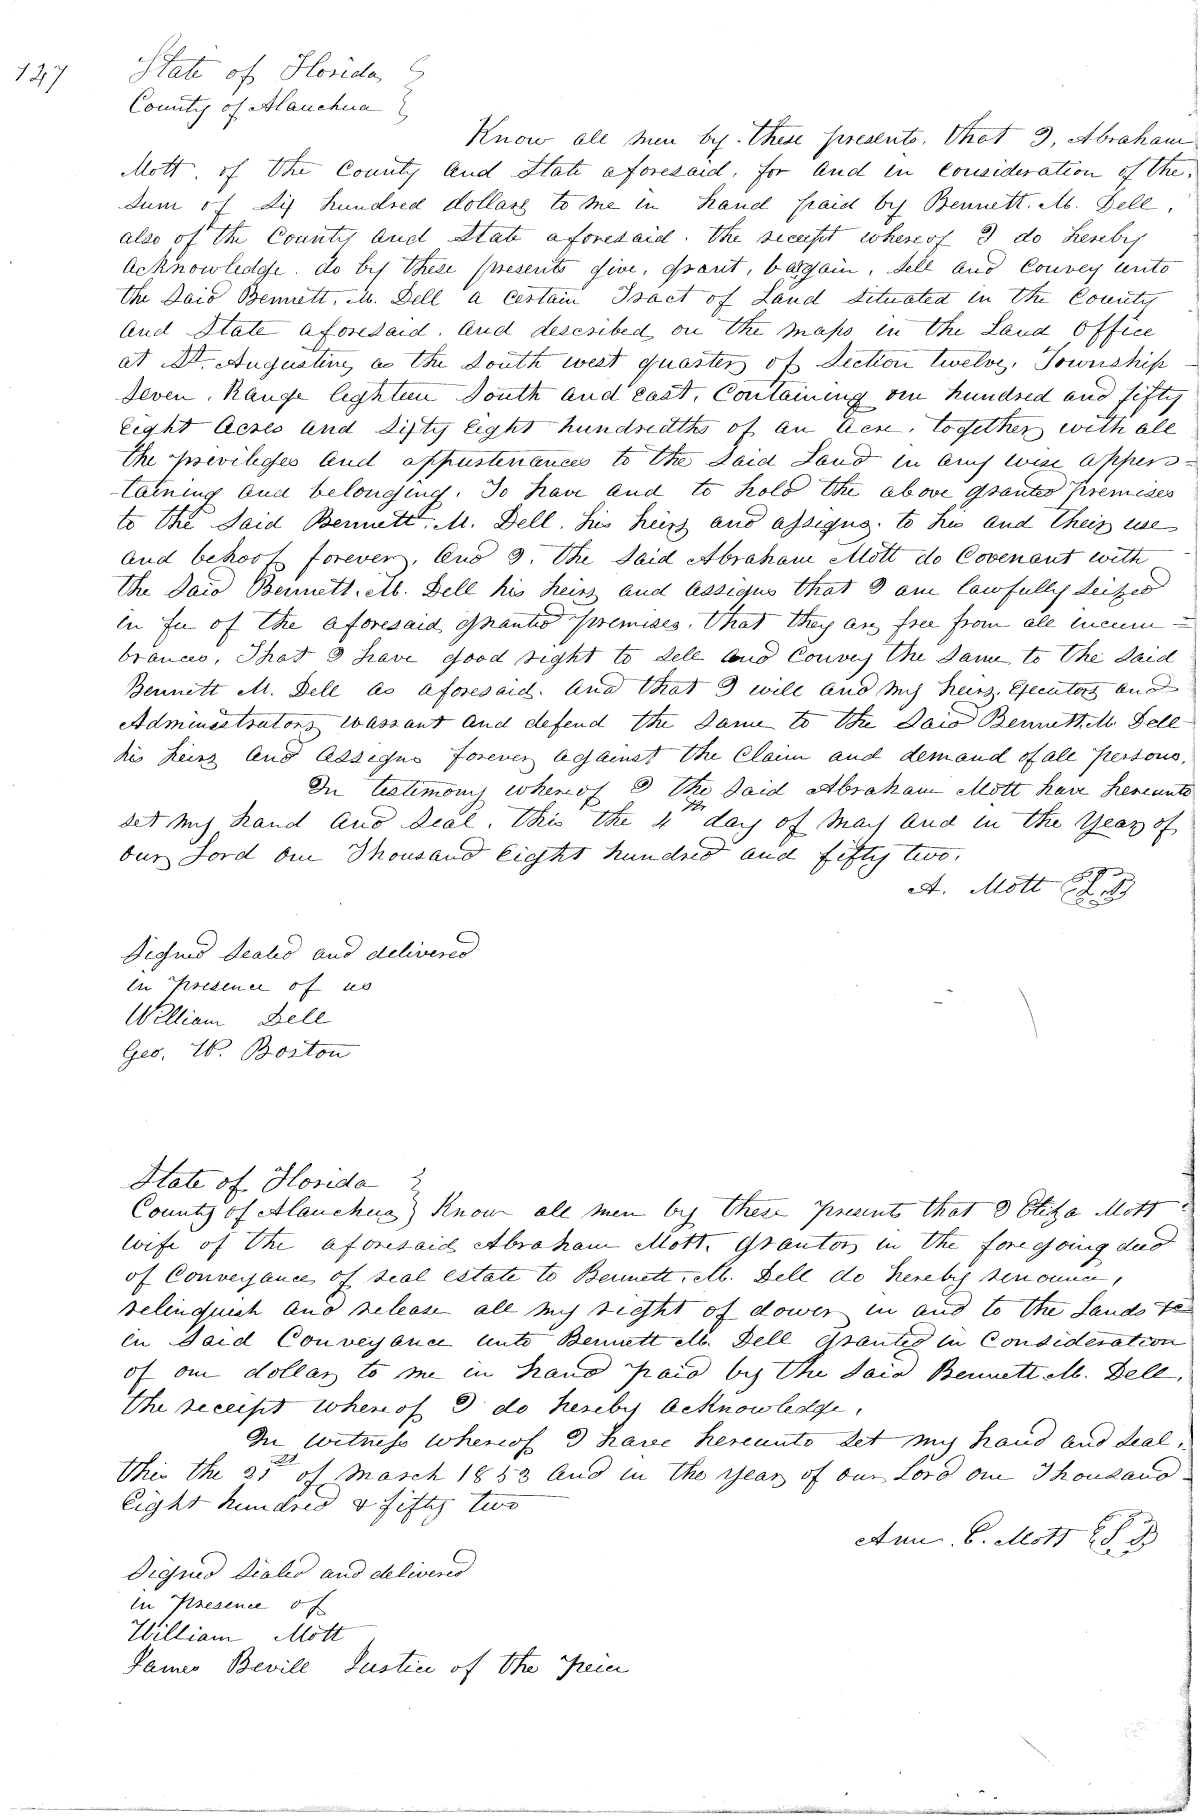 127
State of Florida
County of Alauchua
Know all men by these presents, that I, Abraham
Mott, of the County and State aforesaid, for and in Consideration of the
Sum of Six hundred dollars to me in hand paid by Bennett. M. Dell,
also of the County and State aforesaid. the receipt whereof I do hereby
acknowledge. do by these presents give, grant, bargain, Sell and Convey unto
the Said Bennett. M. Dell a Certain Tract of Land Situated in the County
and State aforesaid. and described on the maps in the Land Office
at St. Augustine, as the South west quarter of Section twelve, Township
Seven, Range Eighteen South and east, Containing one hundred and fifty
Eight Acres and Sixty Eight hundredths of an Acre, together with all
the privileges and appurtenances to the Said Land in any wise apper=
-taining and belonging. To have and to hold the above granted premises
to the Said Bennett. M. Dell. his heirs and assigns. to his and their use
and behoof forever, And I, the Said Abraham Mott do Covenant with
the Said Bennett. M. Dell his heirs and assigns that I am lawfully Seized
in fee of the aforesaid granted premises, that they are free from all incum=
brances, That I have good right to Sell and Convey the Same to the Said
Bennett M. Dell as aforesaid. And that I will and my heirs, Executors and
Administrators, warrant and defend the Same to the Said Bennett. M. Dell
his heirs and assigns forever against the Claim and demand of all persons.
In testimony whereof I the Said Abraham Mott have hereunto
Set my hand and Seal, this the 4th day of May and in the Year of
our Lord one Thousand Eight hundred and fifty two.
A. Mott L.S.
Signed Sealed and delivered
in presence of us
William Dell
Geo. W. Boston
State of Florida
County of Alauchua Know all men by these presents that I Eliza Mott
wife of the aforesaid Abraham Mott. Grantor in the foregoing deed
of Conveyance of real estate to Bennett. M. Dell do hereby renounce,
relinquish and release all my right of dower in and to the Lands &c
in Said Conveyance unto Bennett M. Dell granted in Consideration
of one dollar to me in hand paid by the Said Bennett. M. Dell,
the receipt whereof I do hereby acknowledge.
In witness whereof I have hereunto Set my hand and Seal,
this the 21st of March 1853 and in the year of our Lord one Thousand
Eight hundred & fifty two
Ann. E. Mott L.S.
Signed Sealed and delivered
in presence of
William Mott
James Bevill Justice of the Peice